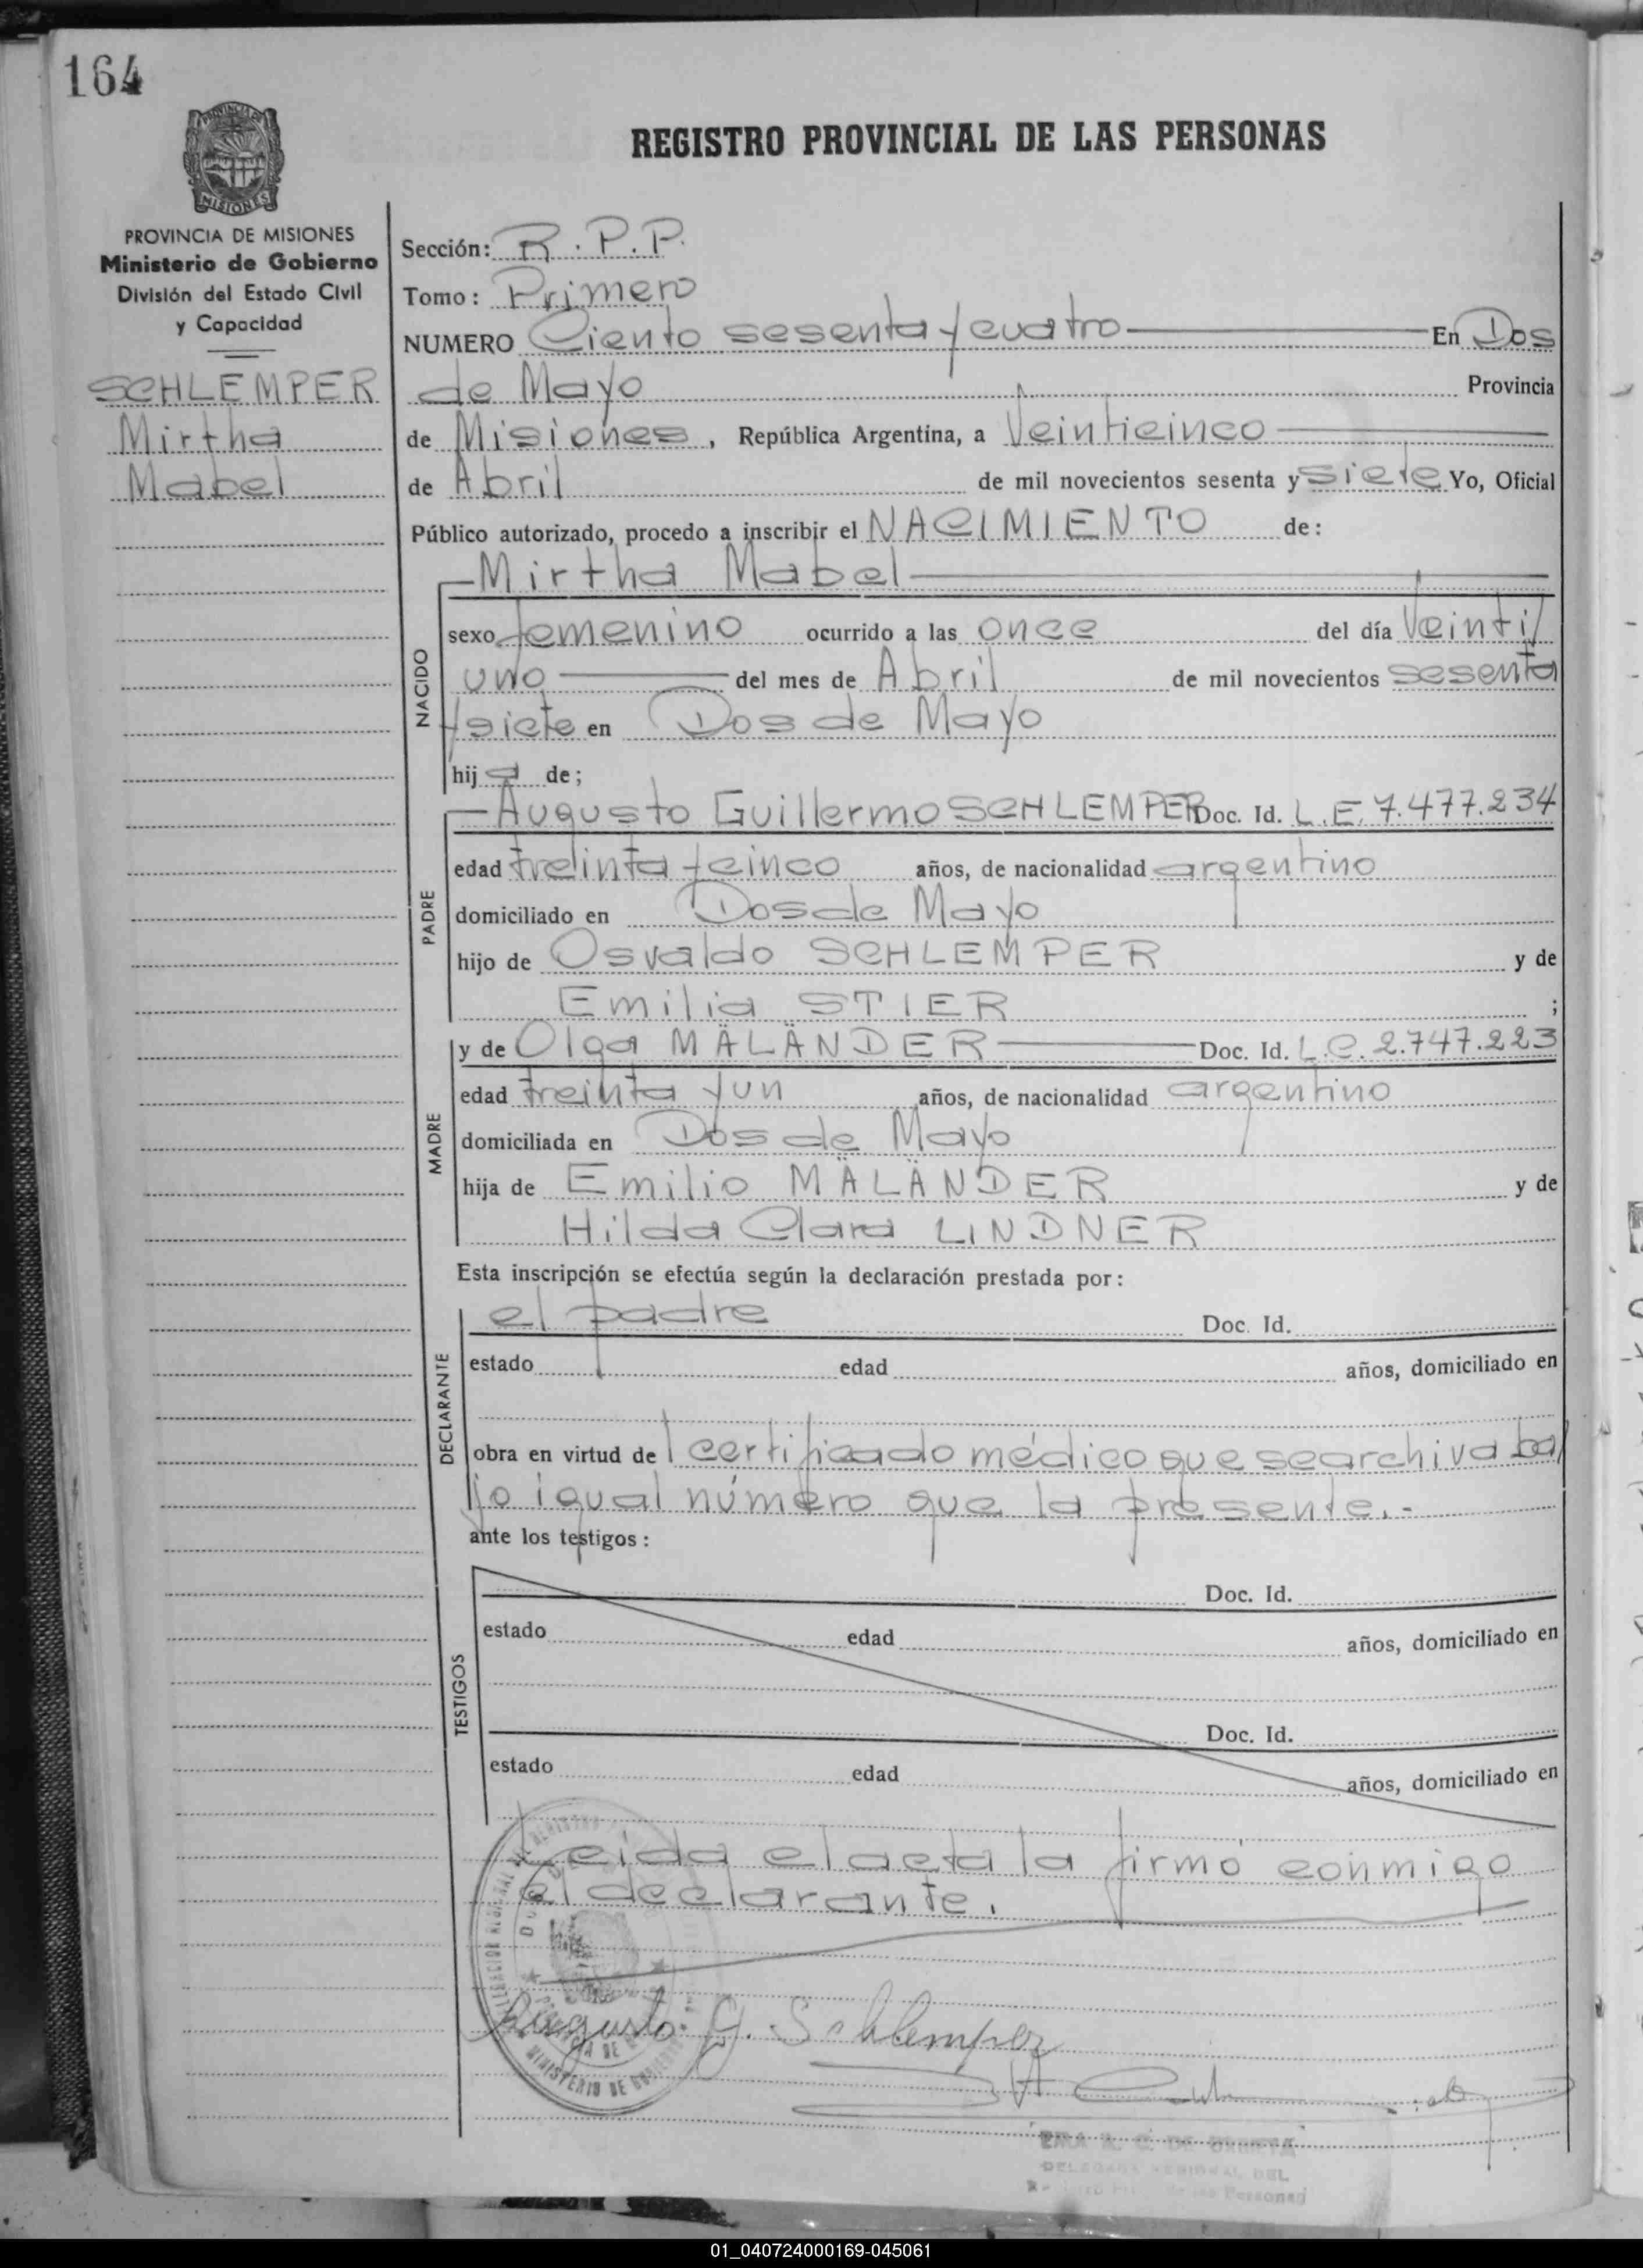 164
PROVINCIA DE
MISIONES
REGISTRO PROVINCIAL DE LAS PERSONAS
PROVINCIA DE MISIONES
Ministerio de Gobierno
División del Estado Civil
y Capacidad
SCHLEMPER
Mirtha
Mabel
Sección: R.P.P.
Tomo: Primero
NUMERO Ciento sesenta y cuatro En Dos
de Mayo Provincia
de Misiones, República Argentina, a Veinticinco
de Abril de mil novecientos sesenta y siete Yo, Oficial
Público autorizado, procedo a inscribir el NACIMIENTO de:
Mirtha Mabel
NACIDO
sexo femenino ocurrido a las once del día Veinti/
uno del mes de Abril de mil novecientos sesenta
y siete en Dos de Mayo
hij a de;
PADRE
Augusto Guillermo SCHLEMPER Doc. Id. L.E. 7.477.234
edad treinta y cinco años, de nacionalidad argentino
domiciliado en Dos de Mayo
hijo de Osvaldo SCHLEMPER y de
Emilia STIER ;
MADRE
y de Olga MÄLÄNDER Doc. Id. L.C. 2.747.223
edad treinta y un años, de nacionalidad argentino
domiciliada en Dos de Mayo
hija de Emilio MÄLÄNDER y de
Hilda Clara LINDNER
Esta inscripción se efectúa según la declaración prestada por:
DECLARANTE
el padre Doc. Id.
estado edad años, domiciliado en
obra en virtud del certificado médico que se archiva ba/
jo igual número que la presente.-
ante los testigos:
TESTIGOS
Doc. Id.
estado edad años, domiciliado en
Doc. Id.
estado edad años, domiciliado en
Leída el acta la firmó conmigo
el declarante.
Augusto G. Schlemper
MINISTERIO DE
DEL
Personas
01_040724000169-045061